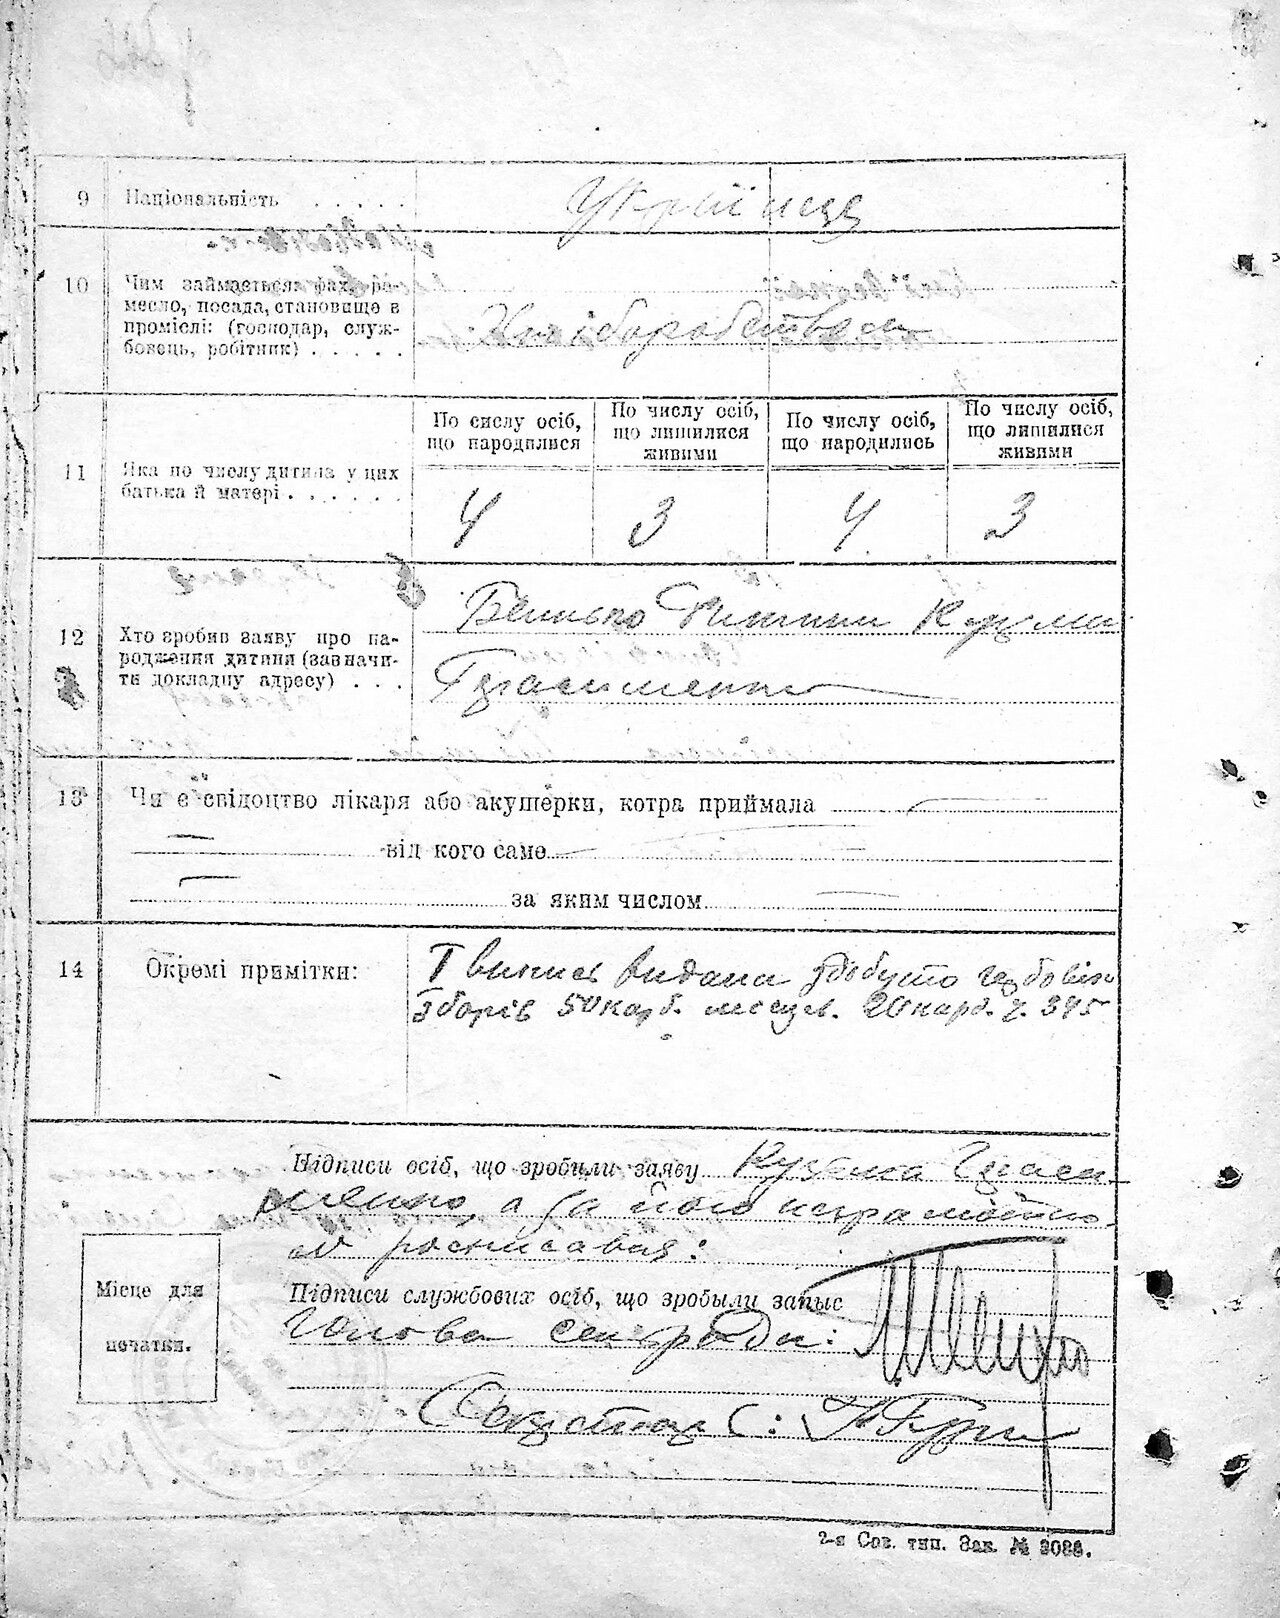 9 Національність . . . . .
Українці
10 Чим займається: фах, ре-
месло, посада, становище в
проміслі: (господар, служ-
бовець, робітник) . . . . .
Хліборобством
11 Яка по числу дитина у цих
батька й матері . . . . . .
По сислу осіб,
що народилися
По числу осіб,
що лишилися
живими
По числу осіб,
що народились
По числу осіб,
що лишилися
живими
4 3 4 3
12 Хто зробив заяву про на-
родження дитини (зазначи-
ти докладну адресу) . . .
Батько дитини Кузьма
Герасименко
13 Чи є свідоцтво лікаря або акушерки, котра приймала
від кого саме
за яким числом
14 Окремі примітки:
видана
зборів 50 карб. місцев. 20 карб. 345
Підписи осіб, що зробили заяву Кузьма Гераси
менко, а за його неграмотно
росписався:
Місце для
печатки.
Підписи службових осіб, що зробыли запыс
Голова сельради:
Секретар
2-я Сов. тип. Зак. № 3086.